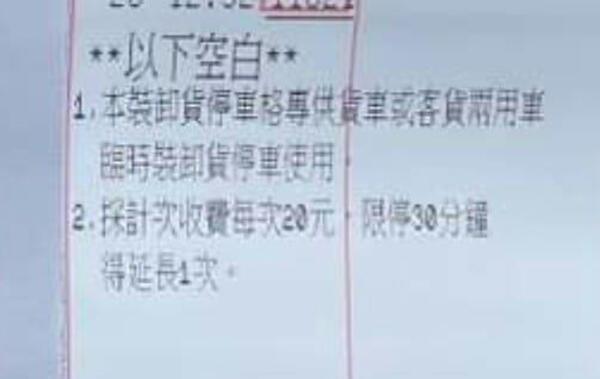 **以下空白**
1.本裝卸貨停車格專供貨車或客貨兩用車
臨時裝卸貨停車使用。
2.採計次收費每次20元,限停30分鐘
得延長1次。